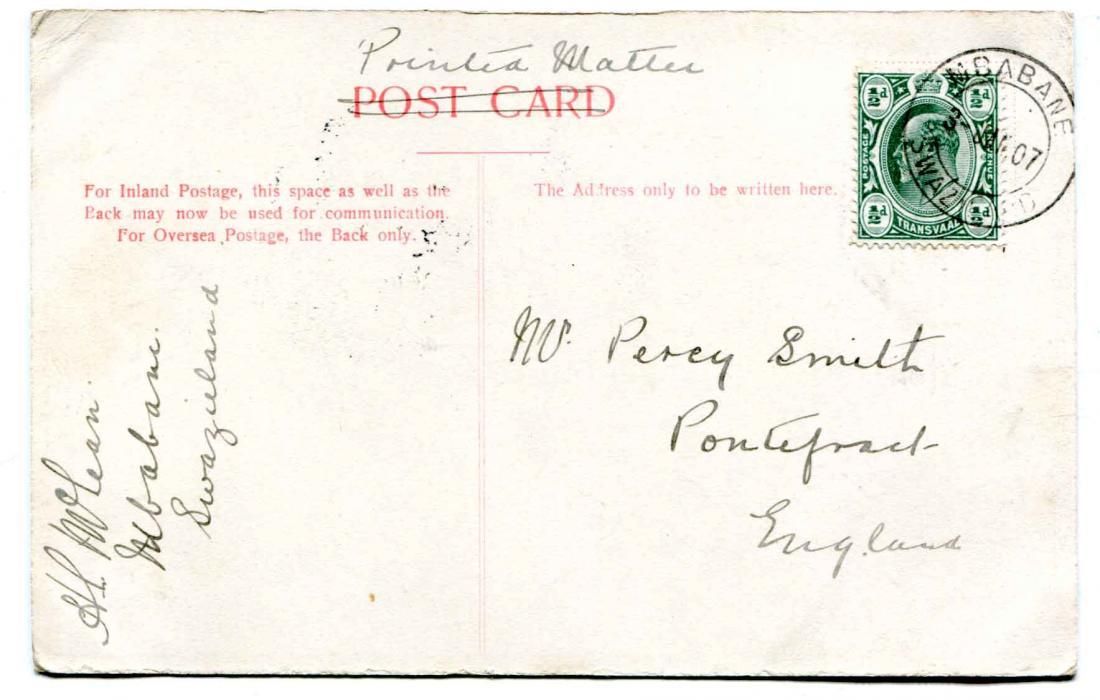 Printed Matter
POST CARD
For Inland Postage, this space as well as the
Back may now be used for communication.
For Oversea Postage, the Back only.
The Address only to be written here.
½d ½d
POSTAGE REVENUE
½d ½d
TRANSVAAL
MBABANE
07
SWAZ D
Mr. Percy Smith
Pontefract
England
McLean.
Mbabane.
Swazieland